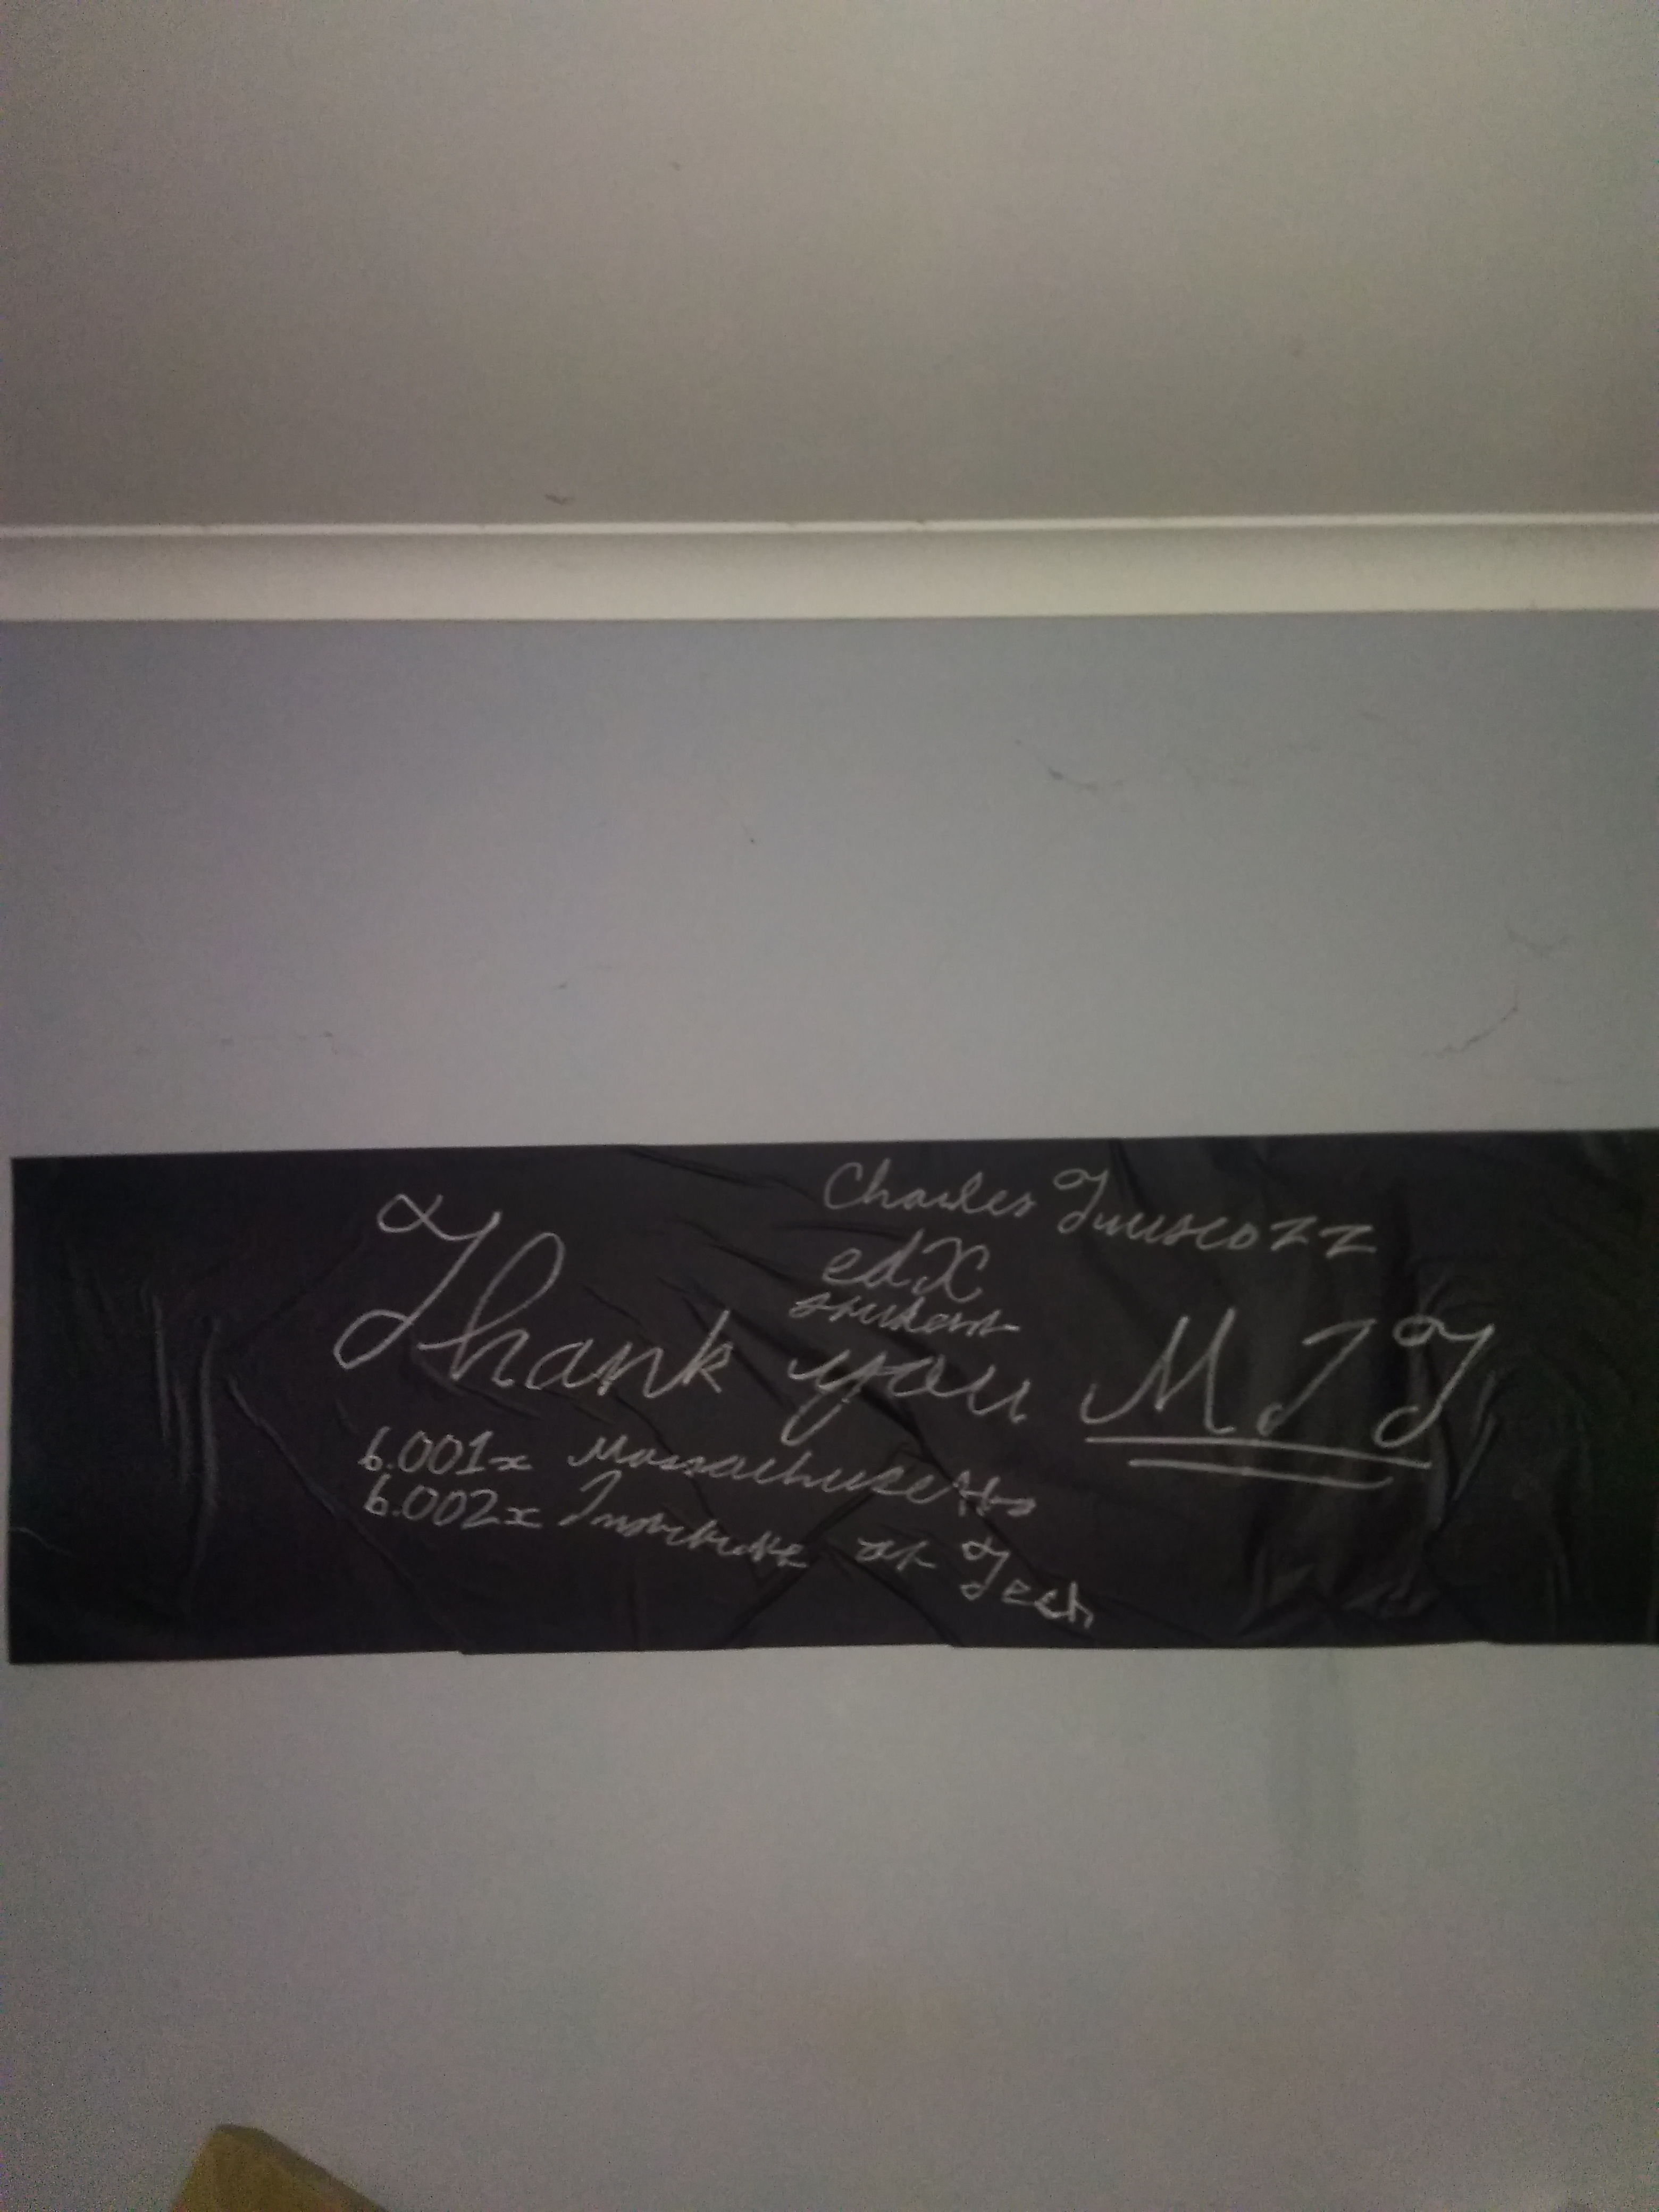 Charles Truscozz
edX
student
Thank you MIT
6.001x Massachusetts
6.002x Institute of Tech